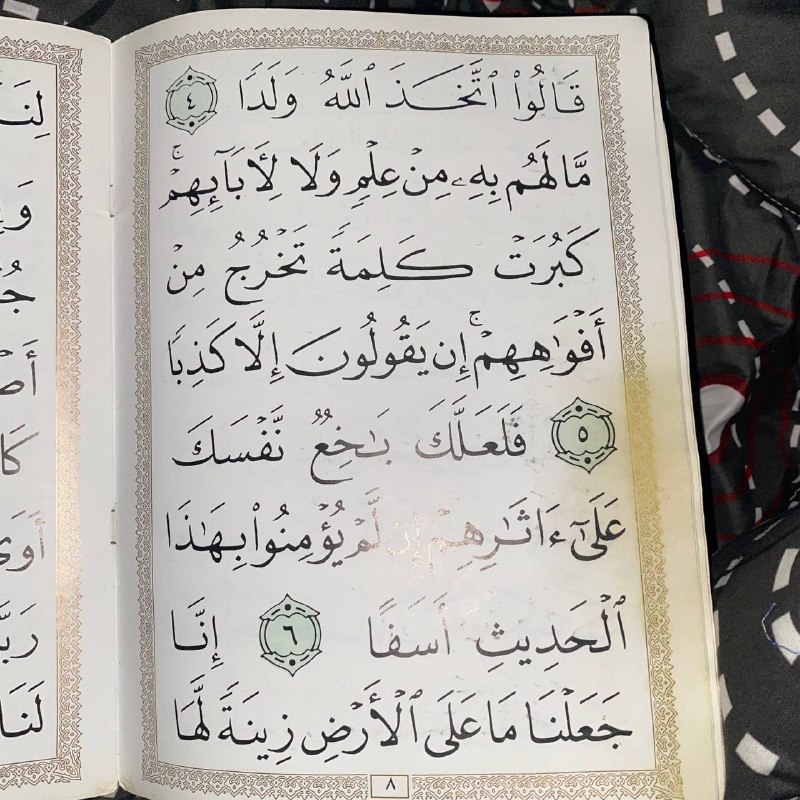 قَالُوا۟ ٱتَّخَذَ ٱللَّهُ وَلَدًا ٤
مَّا لَهُم بِهِۦ مِنْ عِلْمٍ وَلَا لِأَبَآئِهِمْ ۚ
كَبُرَتْ كَلِمَةً تَخْرُجُ مِنْ
أَفْوَٰهِهِمْ ۚ إِن يَقُولُونَ إِلَّا كَذِبًا
٥ فَلَعَلَّكَ بَـٰخِعٌ نَّفْسَكَ
عَلَىٰٓ ءَاثَـٰرِهِمْ إِن لَّمْ يُؤْمِنُوا۟ بِهَـٰذَا
ٱلْحَدِيثِ أَسَفًا ٦ إِنَّا
جَعَلْنَا مَا عَلَى ٱلْأَرْضِ زِينَةً لَّهَا
٨